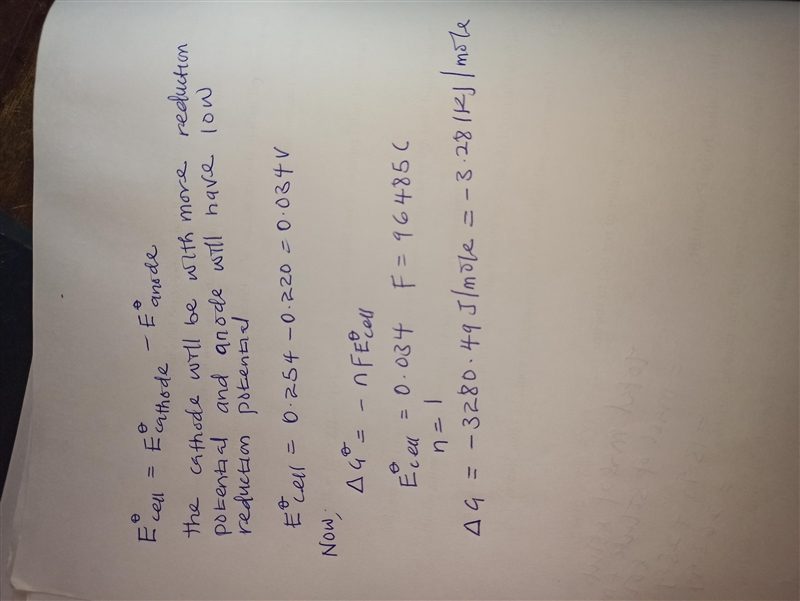 E⊖cell = E⊖cathode − E⊖anode
the cathode will be with more reduction
potential and anode will have low
reduction potential
E⊖cell = 0.254 − 0.220 = 0.034V
Now,
ΔG⊖ = − nFE⊖cell
E⊖cell = 0.034 F = 96485C
n = 1
ΔG = −3280.49 J/mole = −3.281KJ/mole